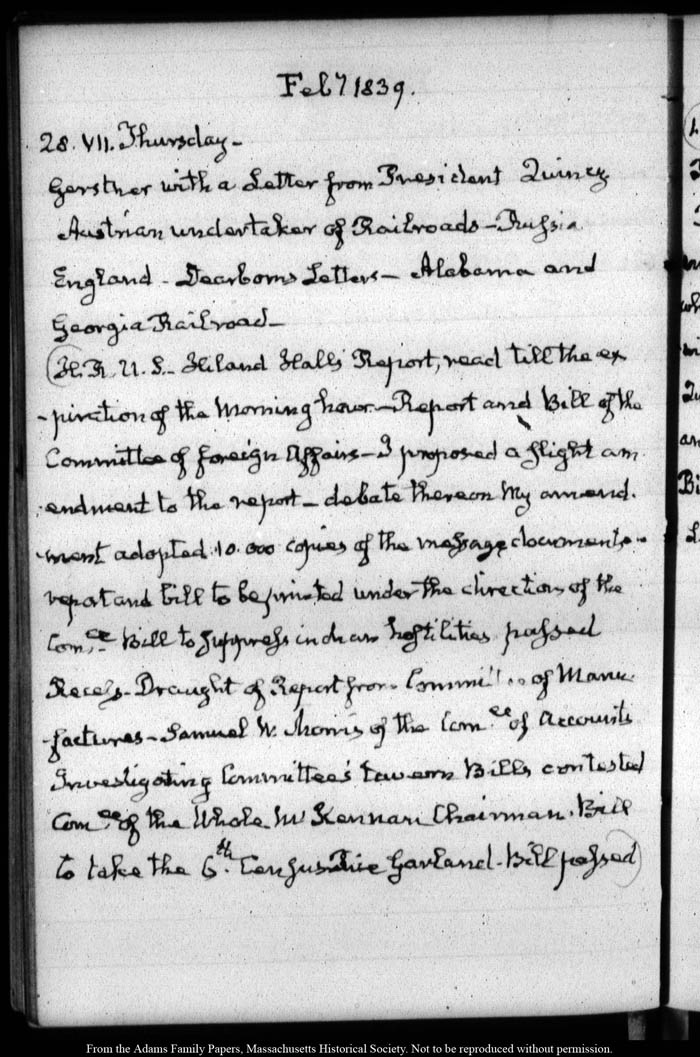 Feby 1839.
28. VII. Thursday–
Gerstner with a Letter from President Quincy
Austrian undertaker of Railroads – Russia
England – Dearborns Letters – Alabama and
Georgia Railroad –
(H.R. U.S. – Hiland Hall's Report, read till the ex
-piration of the Morning hour – Report and Bill of the
Committee of foreign Affairs – I proposed a slight am
-endment to the report – debate thereon My amend.
-ment adopted. 10.000 copies of the message documents –
report and bill to be printed under the direction of the
Com.ee Bill to suppress indian hostilities passed
Recess – Draught of Report from Committee of Manu
-factures – Samuel W. Morris of the Com.ee of Accounts
Investigating Committee's tavern Bills contested
Com.ee of the Whole McKennan Chairman. Bill
to take the 6th. Census Garland – Bill passed)
From the Adams Family Papers, Massachusetts Historical Society. Not to be reproduced without permission.